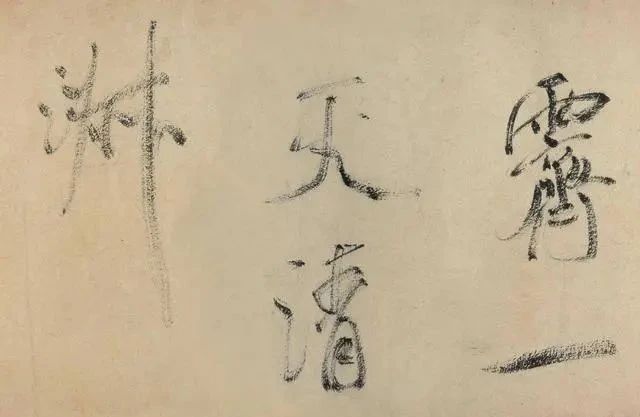 霽一
天清
淋